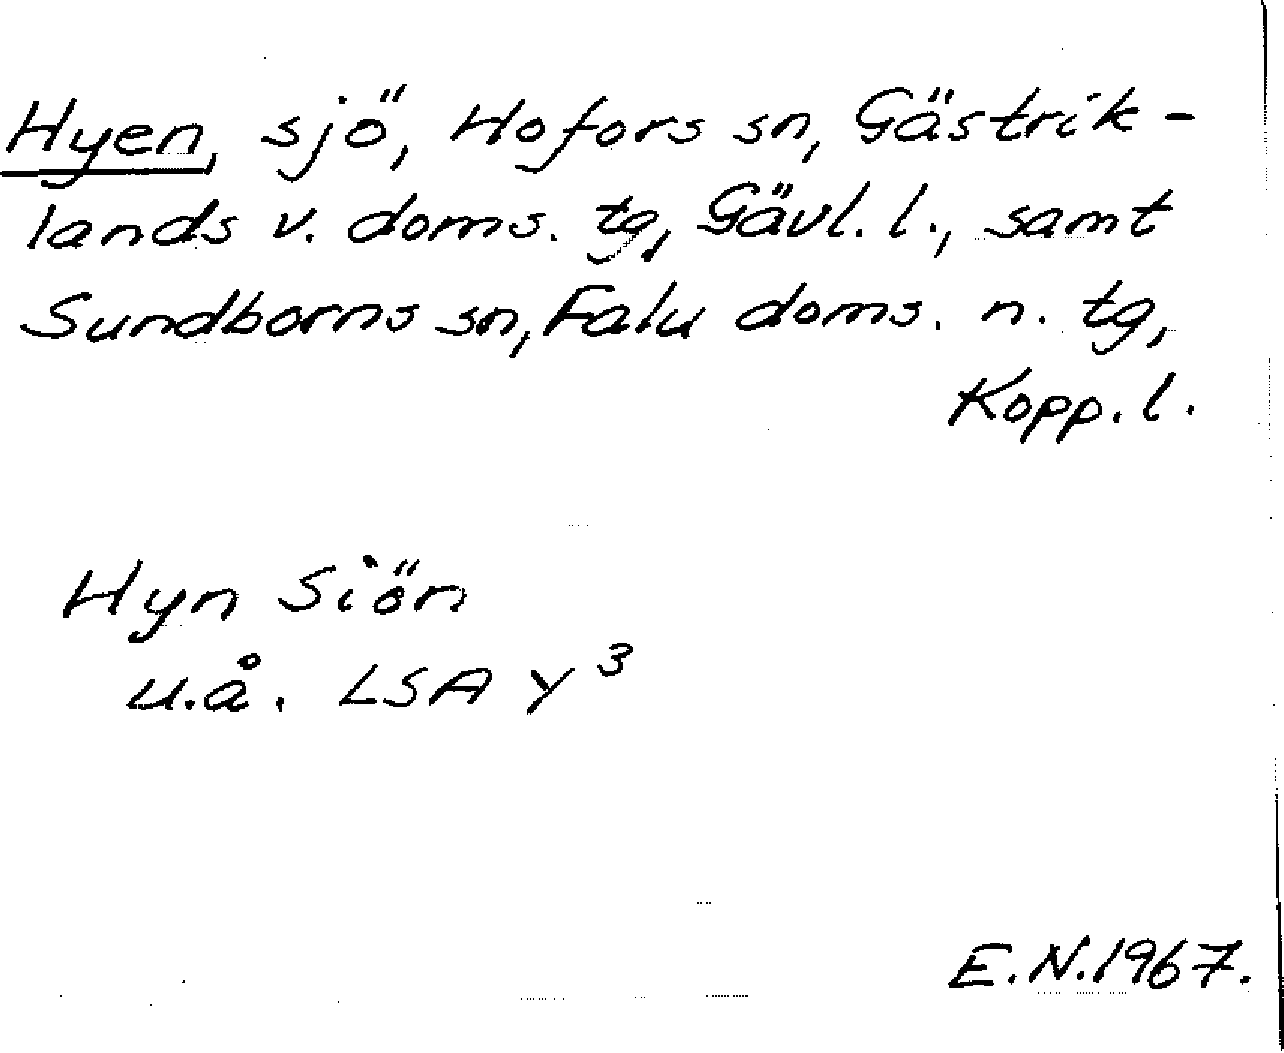 Hyen, sjö, Hofors sn, Gästrik-
lands v. doms. tg, Gävl. l., samt
Sundborns sn, Falu doms. n. tg,
Kopp. l.
Hyn Siön
u.å. LSA Y³
E.N. 1967.